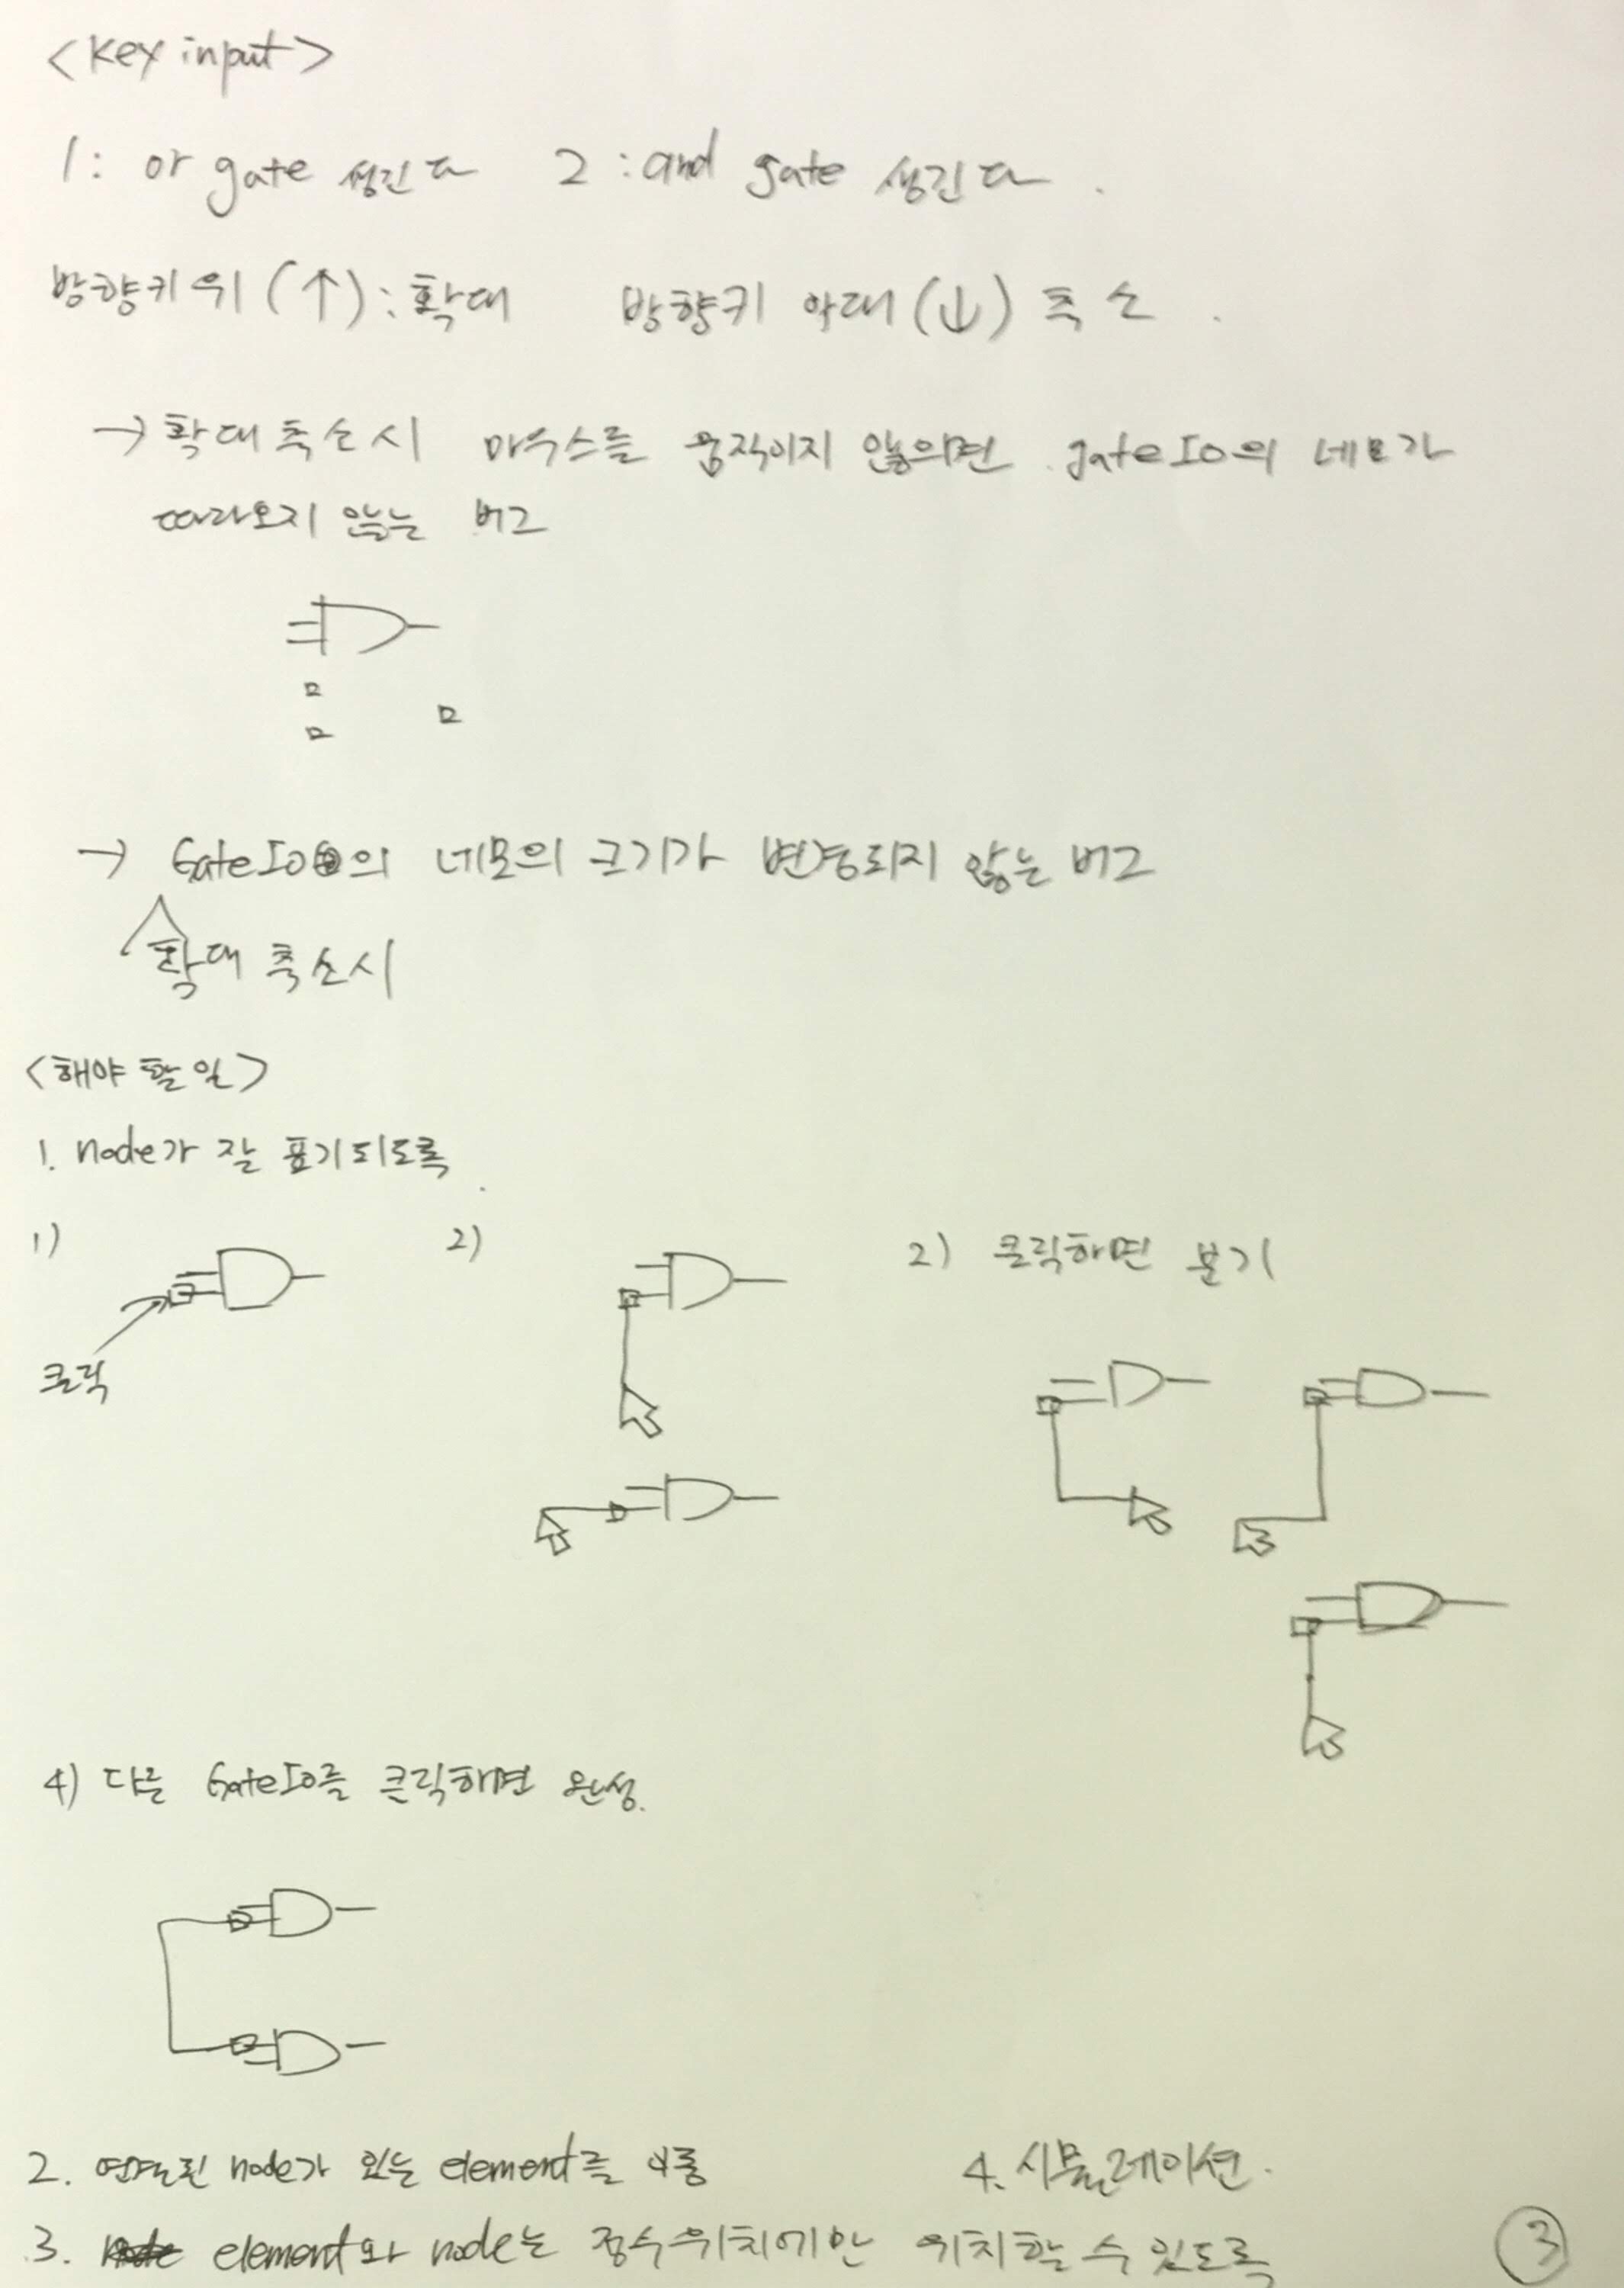 <Key input>
1: or gate 생긴다 2: and gate 생긴다.
방향키 위(↑): 확대 방향키 아래(↓) 축소.
→ 확대 축소시 마우스를 움직이지 않으면 gateIO의 네모가
따라오지 않는 버그
→ GateIO의 네모의 크기가 변경되지 않는 버그
확대 축소시
<해야 할 일>
1. node가 잘 표기되도록.
1) 2) 2) 클릭하면 분기
클릭
4) 다른 GateIO를 클릭하면 완성.
2. 연결된 node가 있는 element를 이동 4. 시뮬레이션.
3. element와 node는 정수위치에만 위치할 수 있도록
3